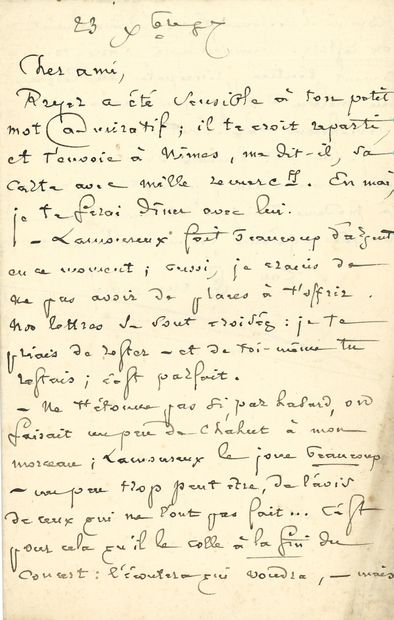 23 Xbre 97
Cher ami,
Reyer a été sensible à ton petit
mot admiratif ; il te croit reparti,
et t'envoie à Nîmes, me dit-il, sa
carte avec mille remercts. En mai,
je te ferai dîner avec lui.
- Lamoureux fait beaucoup d'argent
en ce moment ; aussi, je crains de
ne pas avoir de places à t'offrir.
Nos lettres se sont croisées : je te
priais de rester - et de toi-même tu
restais ; c'est parfait.
- Ne t'étonne pas si, par hasard, on
faisait un peu de chahut à mon
morceau ; Lamoureux le joue beaucoup
- un peu trop peut être, de l'avis
de ceux qui ne l'ont pas fait... C'est
pour cela qu'il le colle à la fin du
concert : l'écoutera qui voudra, - mais